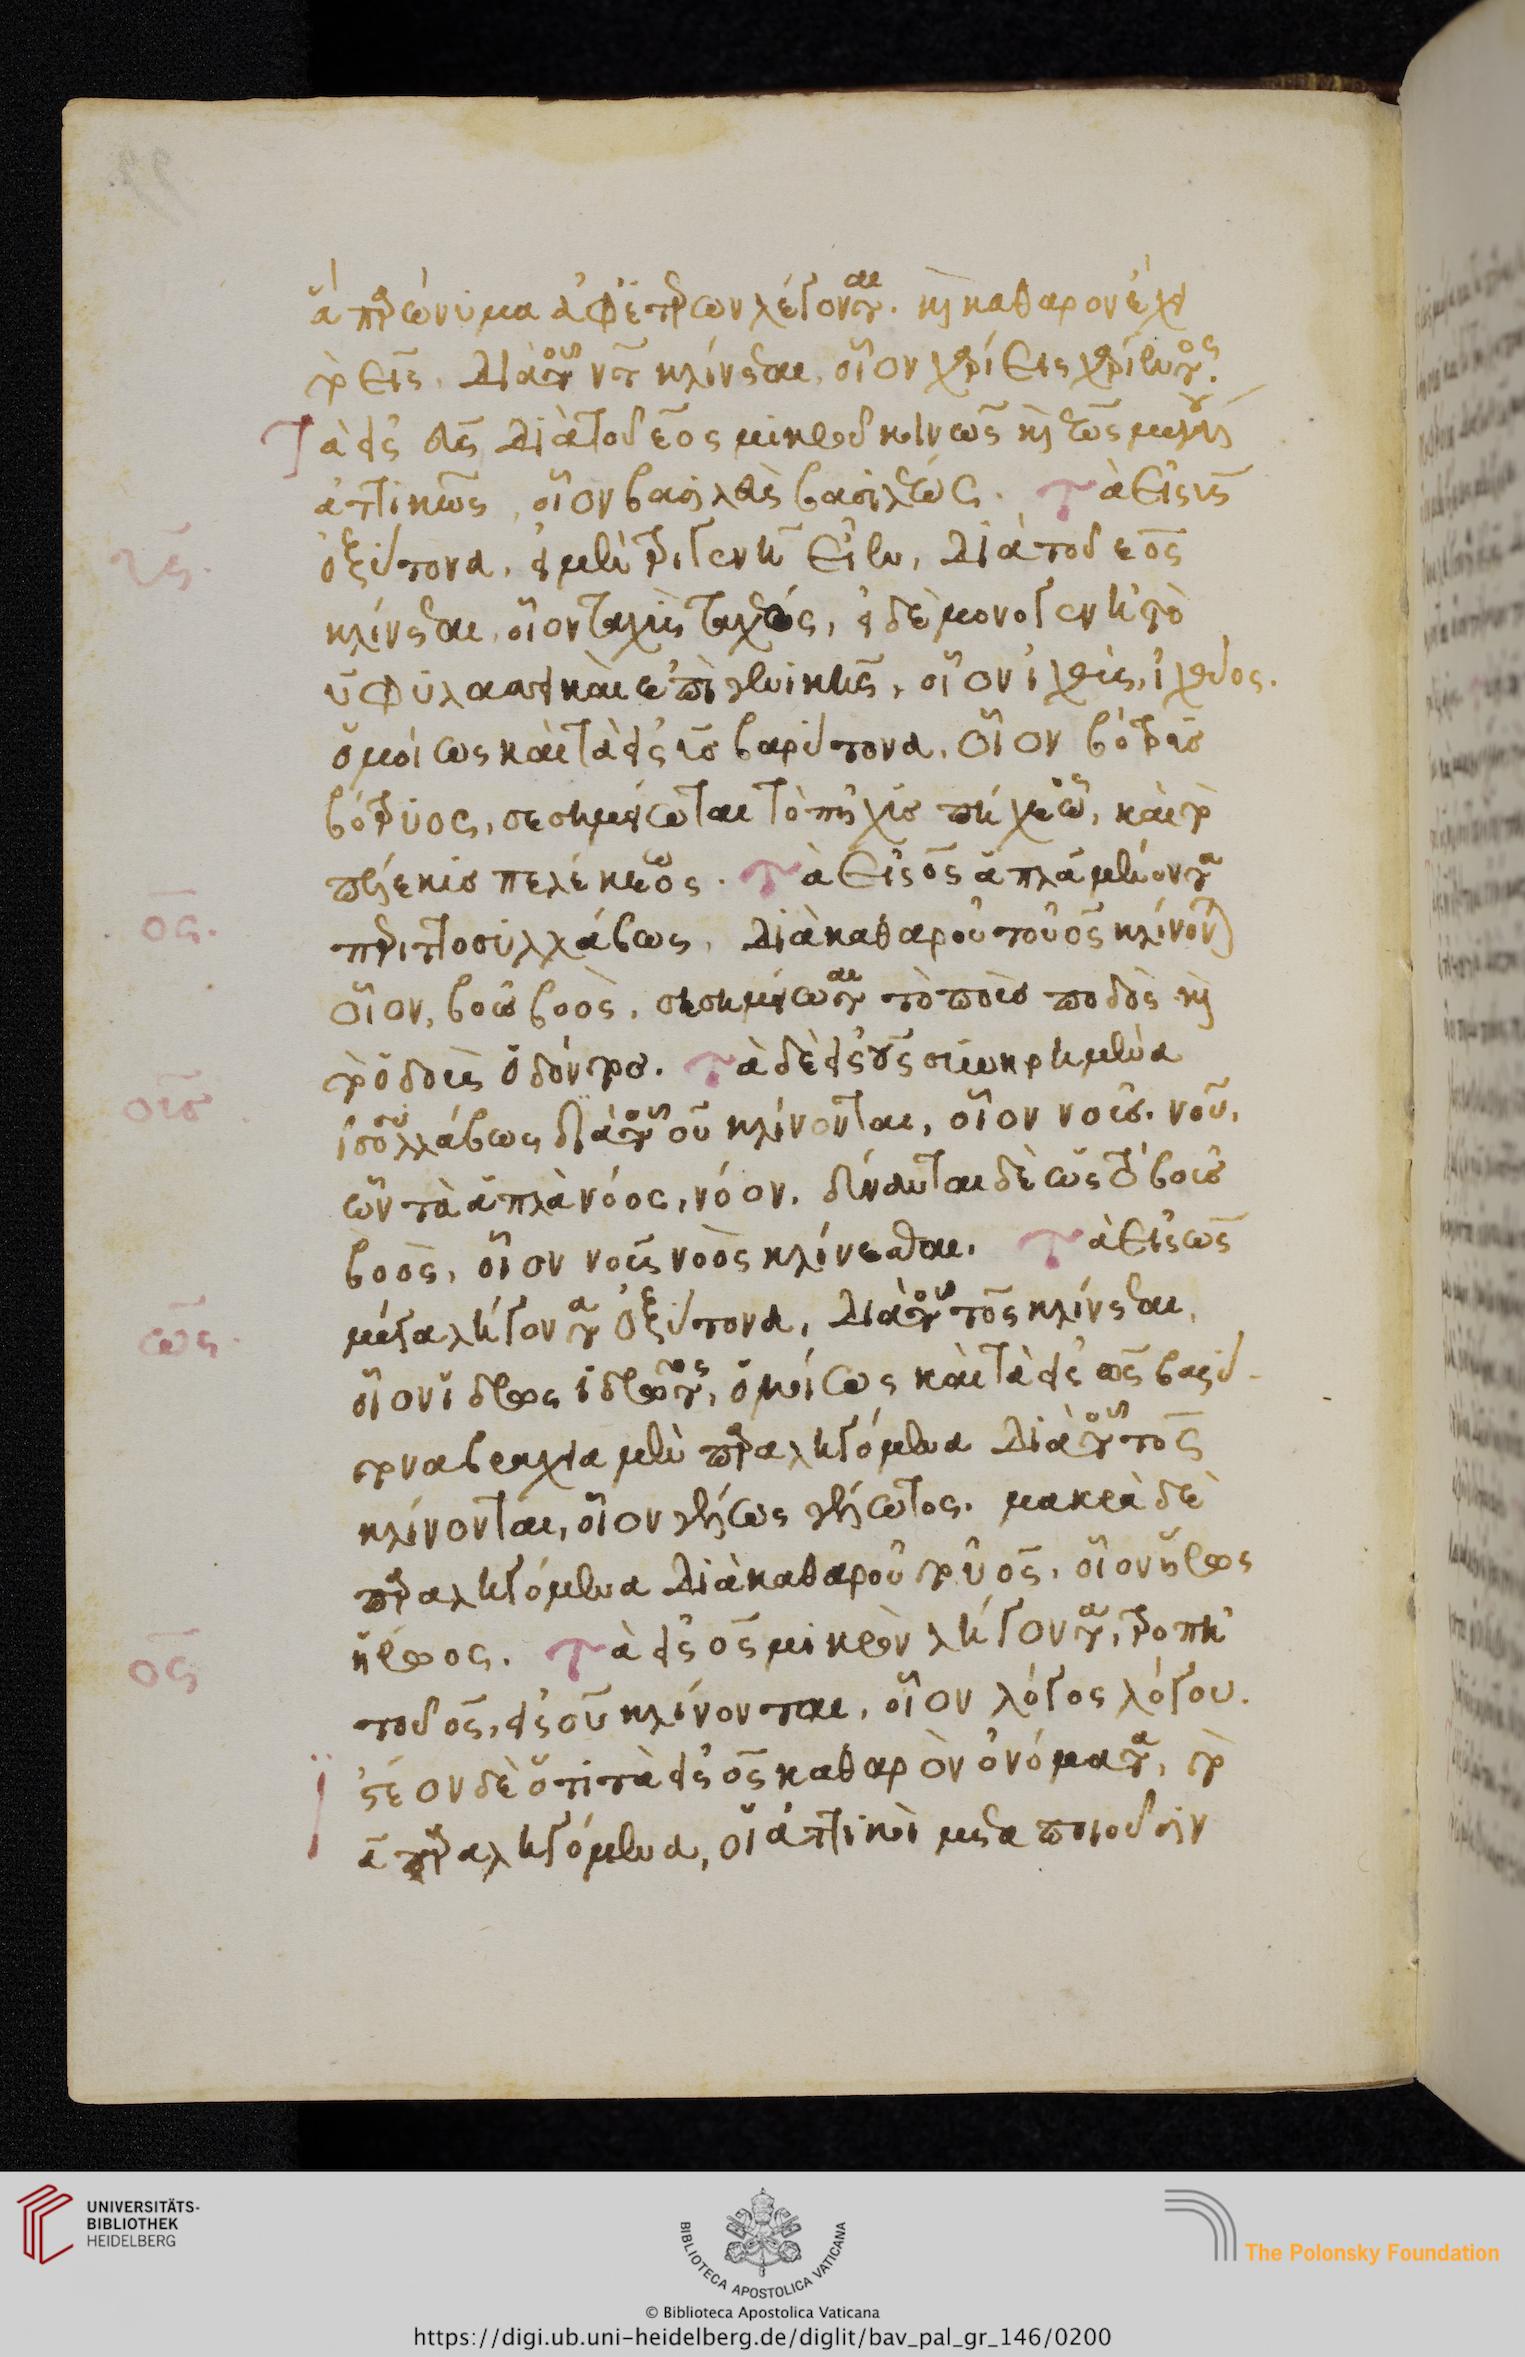 ἃ παρώνυμα ἀφ' ἑτέρων λέγονται. καὶ καθαρὸν ἔχει
τὸ εις, διὰ τοῦ ντ κλίνεται, οἷον χαρίεις χαρίεντος.
Τὰ εἰς εὺς διὰ τοῦ εος μικροῦ κοινῶς καὶ εως μεγάλου
ἀττικῶς, οἷον βασιλεὺς βασιλέως. Τὰ εἰς υς
υς.
ὀξύτονα, εἰ μὲν τριγενῆ εἴη, διὰ τοῦ εος
κλίνεται, οἷον ταχὺς ταχέος, εἰ δὲ μονογενῆ τὸ
υ φυλάττει καὶ ἐπὶ γενικῆς, οἷον ἰχθὺς, ἰχθύος.
ὁμοίως καὶ τὰ εἰς υσ βαρύτονα. οἷον βότρυσ
βότρυος, σεσημείωται τὸ πῆχυσ πήχεως, καὶ τὸ
πέλεκυσ πελέκεως. Τὰ εἰς ους ἁπλᾶ μὲν ὄντα
ος.
περιττοσυλλάβως, διὰ καθαροῦ τοῦ ος κλίνονται
οἷον, βοῦσ βοὸς. σεσημείωται τὸ ποῦσ ποδὸς καὶ
τὸ ὀδοὺς ὀδόντοσ. Τὰ δὲ εἰς ους συνῃρημένα
ουσ.
ἰσοσυλλάβως διὰ τοῦ ου κλίνονται, οἷον νοῦσ. νοῦ.
ὧν τὰ ἁπλᾶ νόος, νόου. δύνανται δὲ ὡς τὸ βοῦσ
βοὸς, οἷον νοῦς νοὸς κλίνεσθαι. Τὰ εἰς ως
ως.
μέγα λήγοντα ὀξύτονα, διὰ τοῦ τος κλίνεται,
οἷον ἱδρὼς ἱδρῶτος, ὁμοίως καὶ τὰ εἰς ως βαρύ-
τονα βραχεῖα μὲν παραληγόμενα διὰ τοῦ τος
κλίνονται, οἷον γέλως γέλωτος. μακρᾷ δὲ
παραληγόμενα διὰ καθαροῦ τοῦ ος. οἷον ἥρως
ἥρωος. Τὰ εἰς ος μικρὸν λήγοντα, τροπῇ
ος
τοῦ ος, εἰς ου κλίνονται, οἷον λόγος λόγου.
ἰστέον δὲ ὅτι τὰ εἰς ος καθαρὸν ὀνόματα, τῷ
α παραληγόμενα, οἱ ἀττικοὶ μεταποιοῦσιν
UNIVERSITÄTS-
BIBLIOTHEK
HEIDELBERG
BIBLIOTECA APOSTOLICA VATICANA
The Polonsky Foundation
© Biblioteca Apostolica Vaticana
https://digi.ub.uni-heidelberg.de/diglit/bav_pal_gr_146/0200